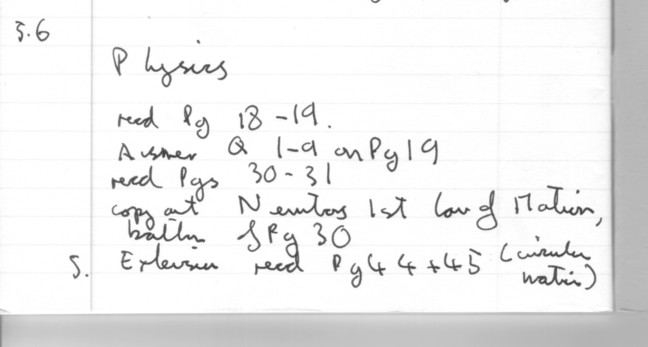 5.6
Physics
read Pg 18-19.
Answer Q 1-9 on Pg 19
read Pgs 30-31
copy out Newtons 1st Law of Motion,
bottom of Pg 30
5. Extension read Pg 44+45 (circular
motion)